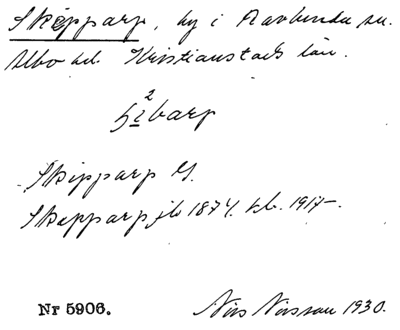 Skepparp, by i Ravlunda sn.
Albo hd. Kristianstads län.
Skepparp G.
Skepparp jb 1874. tel. 1917-.
Nr 5906.
Nils Nilsson 1930.